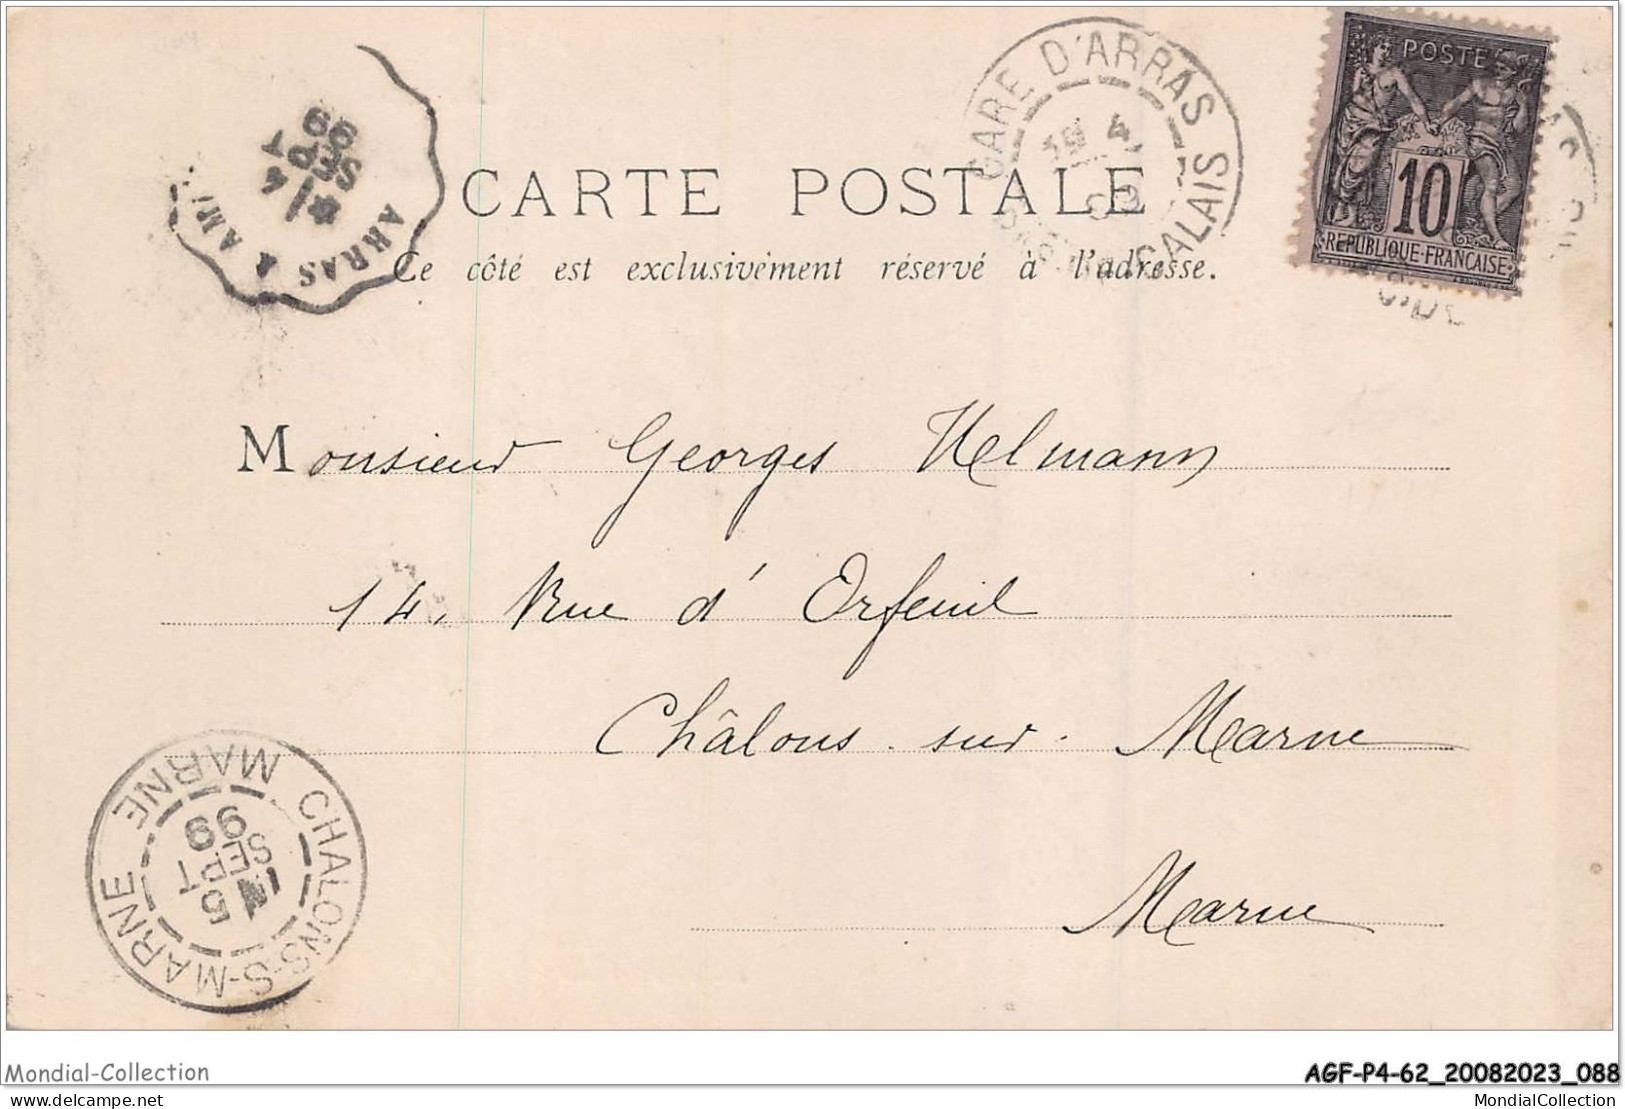 GARE D'ARRAS
CALAIS
4
POSTE
10
REPUBLIQUE-FRANCAISE
ARRAS A AMI
4
SEPT
99
CARTE POSTALE
Ce côté est exclusivement réservé à l'adresse.
Monsieur Georges Helmann
14, Rue d'Orfeuil
Châlons-sur-Marne
Marne
CHALONS-S-MARNE
MARNE
5
SEPT
99
Mondial-Collection
AGF-P4-62_20082023_088
delcampe.net
MondialCollection